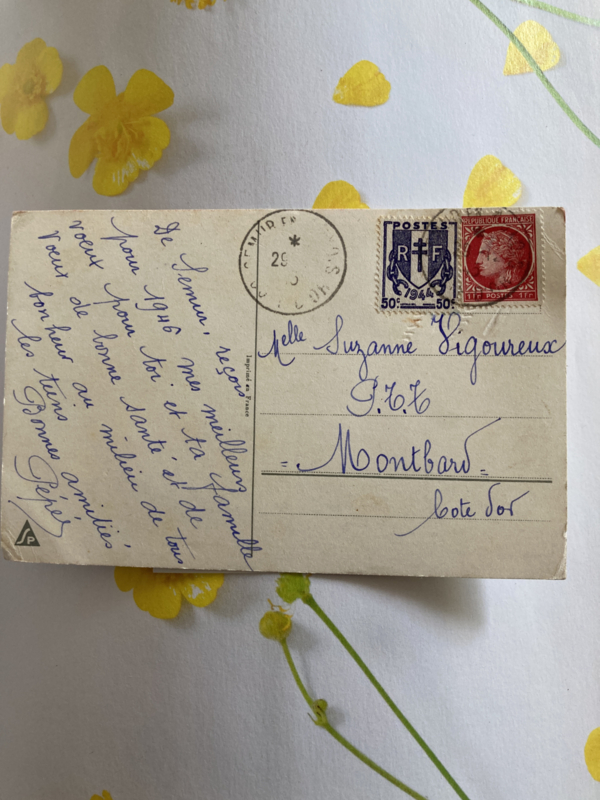 De Semur, reçois
pour 1946 mes meilleurs
voeux pour toi et ta famille
Voeux de bonne santé et de
bonheur au milieu de tous
les tiens
Bonnes amitiés,
Pépée
Imprimé en France
SEMUR EN AUXOIS
*
29
CÔTE D'OR
POSTES
RF
1944
50c 50c
REPUBLIQUE FRANÇAISE
1Fr POSTES 1Fr
Melle Suzanne Vigoureux
P.T.T
= Montbard =
Cote d'or